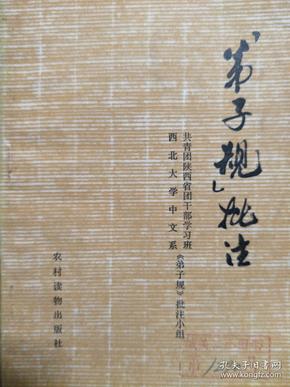 《弟子规》批注
共青团陕西省团干部学习班
西北大学中文系
《弟子规》批注小组
农村读物出版社
孔夫子旧书网